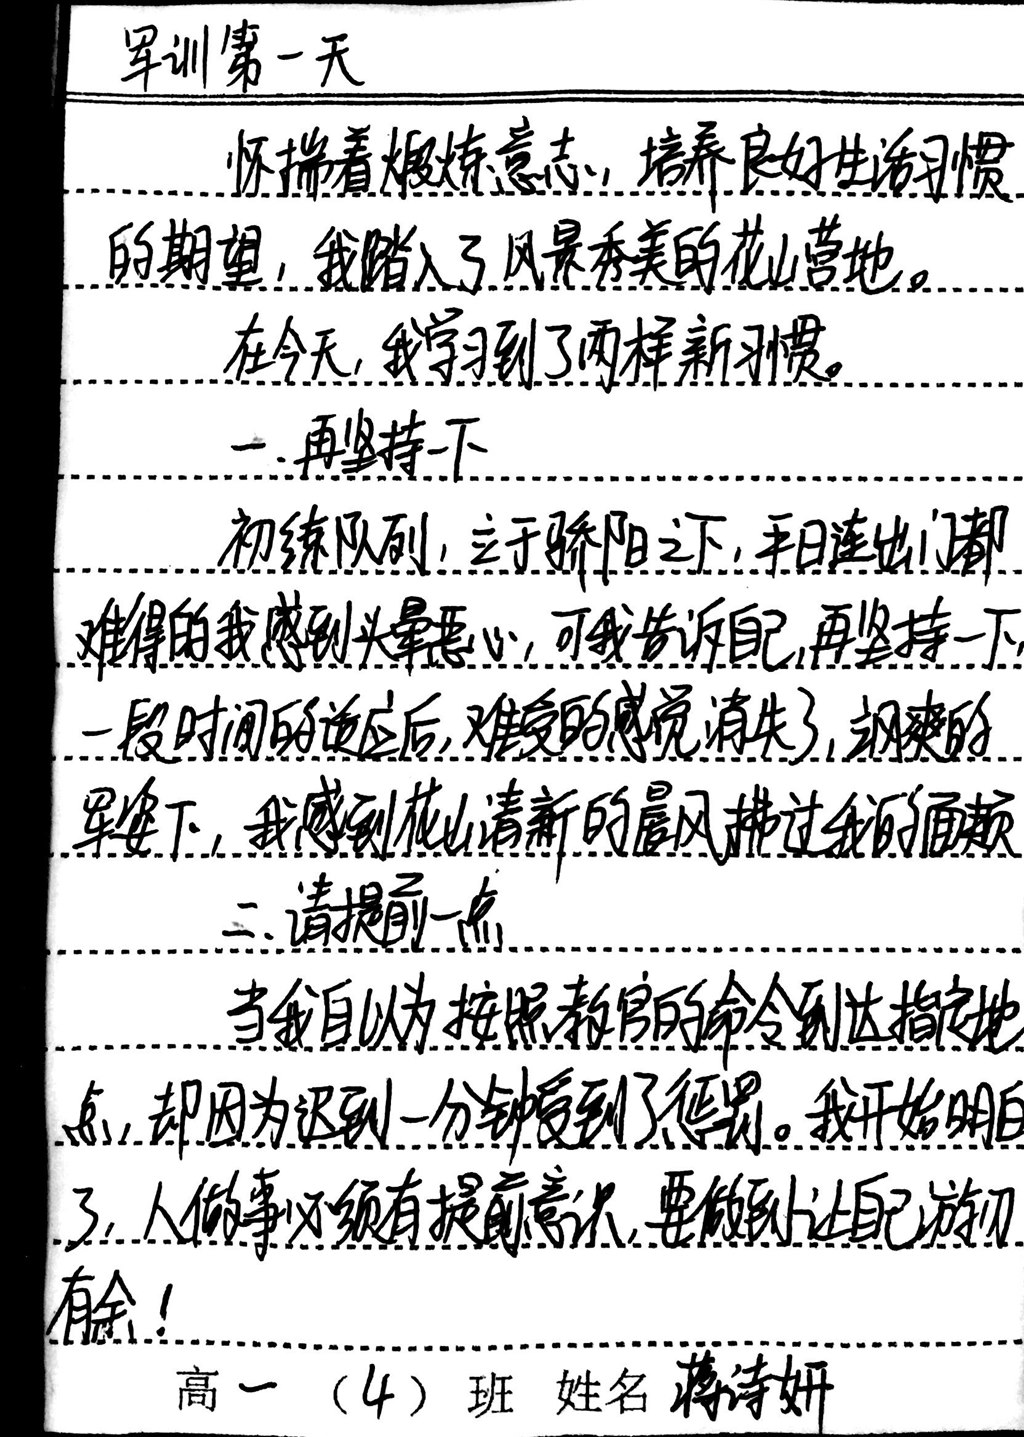 军训第一天
怀揣着煅炼意志，培养良好生活习惯
的期望，我踏入了风景秀美的花山营地。
在今天，我学习到了两样新习惯。
一.再坚持一下
初练队列，立于骄阳之下，平日连出门都
难得的我感到头晕恶心，可我告诉自己，再坚持一下，
一段时间的适应后，难受的感觉消失了，飒爽的
军姿下，我感到花山清新的晨风拂过我的面颊
二.请提前一点
当我自以为按照教官的命令到达指定地
点，却因为迟到一分钟受到了惩罚。我开始明白
了，人做事必须有提前意识，要做到让自己游刃
有余！
高一（4）班 姓名 蒋诗妍